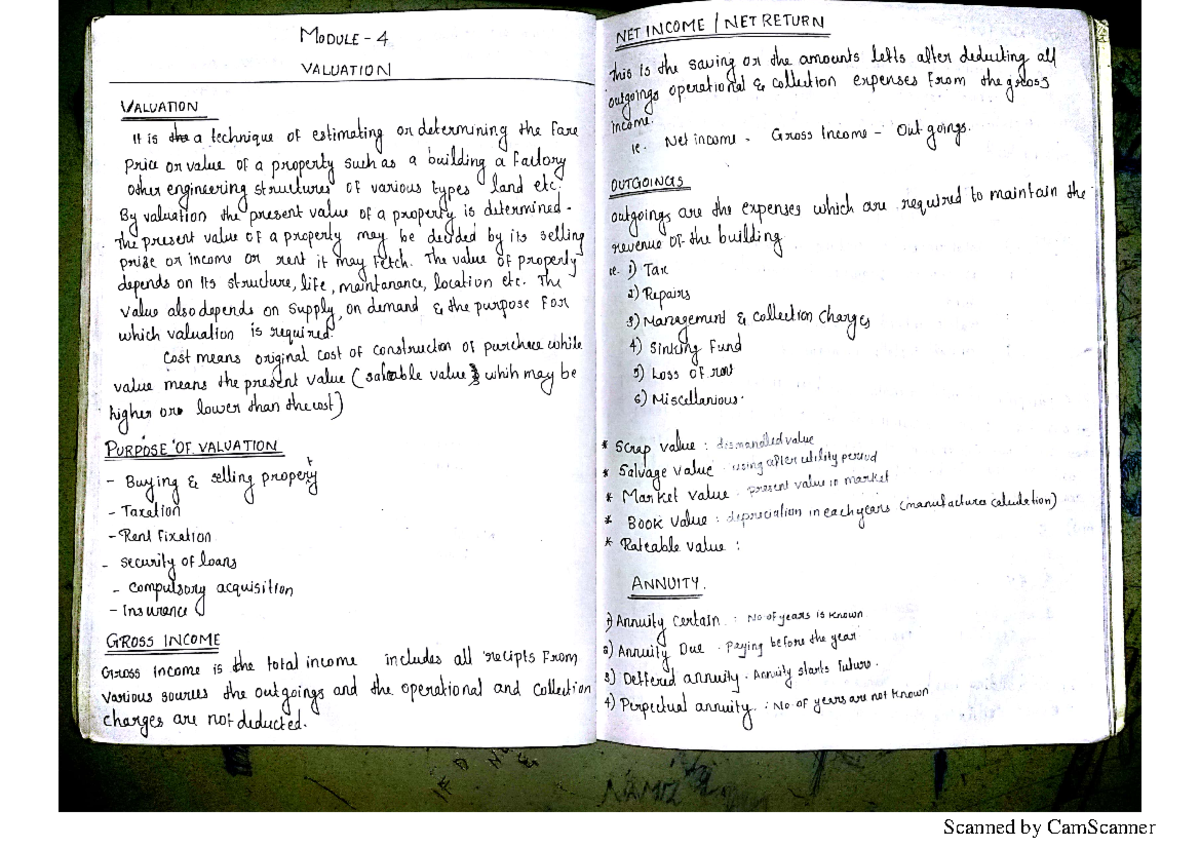 MODULE - 4
VALUATION
VALUATION
It is the a technique of estimating or determining the fare
price or value of a property such as a building a factory
other engineering structures of various types land etc.
By valuation the present value of a property is determined.
The present value of a property may be decided by its selling
prise or income or rent it may fetch. The value of property
depends on its structure, life, maintanance, location etc. The
value also depends on supply, on demand & the purpose for
which valuation is required.
Cost means original cost of construction of purchase while
value means the present value (saleable value) which may be
higher or lower than the cost)
PURPOSE OF VALUATION
- Buying & selling property
- Taxation
- Rent fixation
- security of loans
- compulsory acquisition
- Insurance
GROSS INCOME
Gross income is the total income includes all recipts from
various sources the outgoings and the operational and collection
charges are not deducted.
NET INCOME / NET RETURN
This is the saving or the amounts lefts after deducting all
outgoings operational & collection expenses from the gross
income.
ie. Net income - Gross Income - Out goings.
OUTGOINGS
outgoings are the expenses which are required to maintain the
revenue of the building
ie. 1) Tax
2) Repairs
3) Management & collection charges
4) Sinking fund
5) Loss of rent
6) Miscellanious.
* Scrap value : dismandled value
* Salvage value - using after utility period
* Market value - present value in market
* Book value : depreciation in each years (manufactures calculation)
* Rateable value :
ANNUITY.
1) Annuity certain. : No of years is known
2) Annuity Due - Paying before the year
3) Deffered annuity - Annuity starts future.
4) Perpectual annuity. : No of years are not known
Scanned by CamScanner